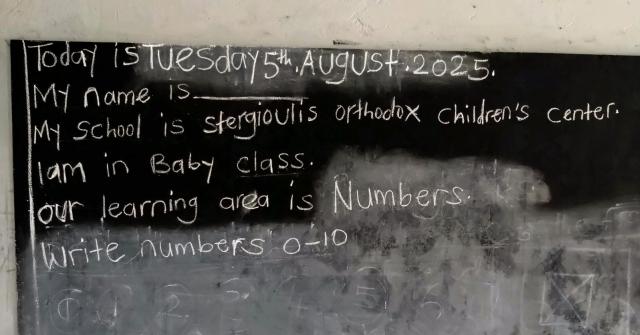 Today is Tuesday 5th. August. 2025.
My name is
My school is stergioulis orthodox children's center.
I am in Baby class.
our learning area is Numbers.
Write numbers 0-10